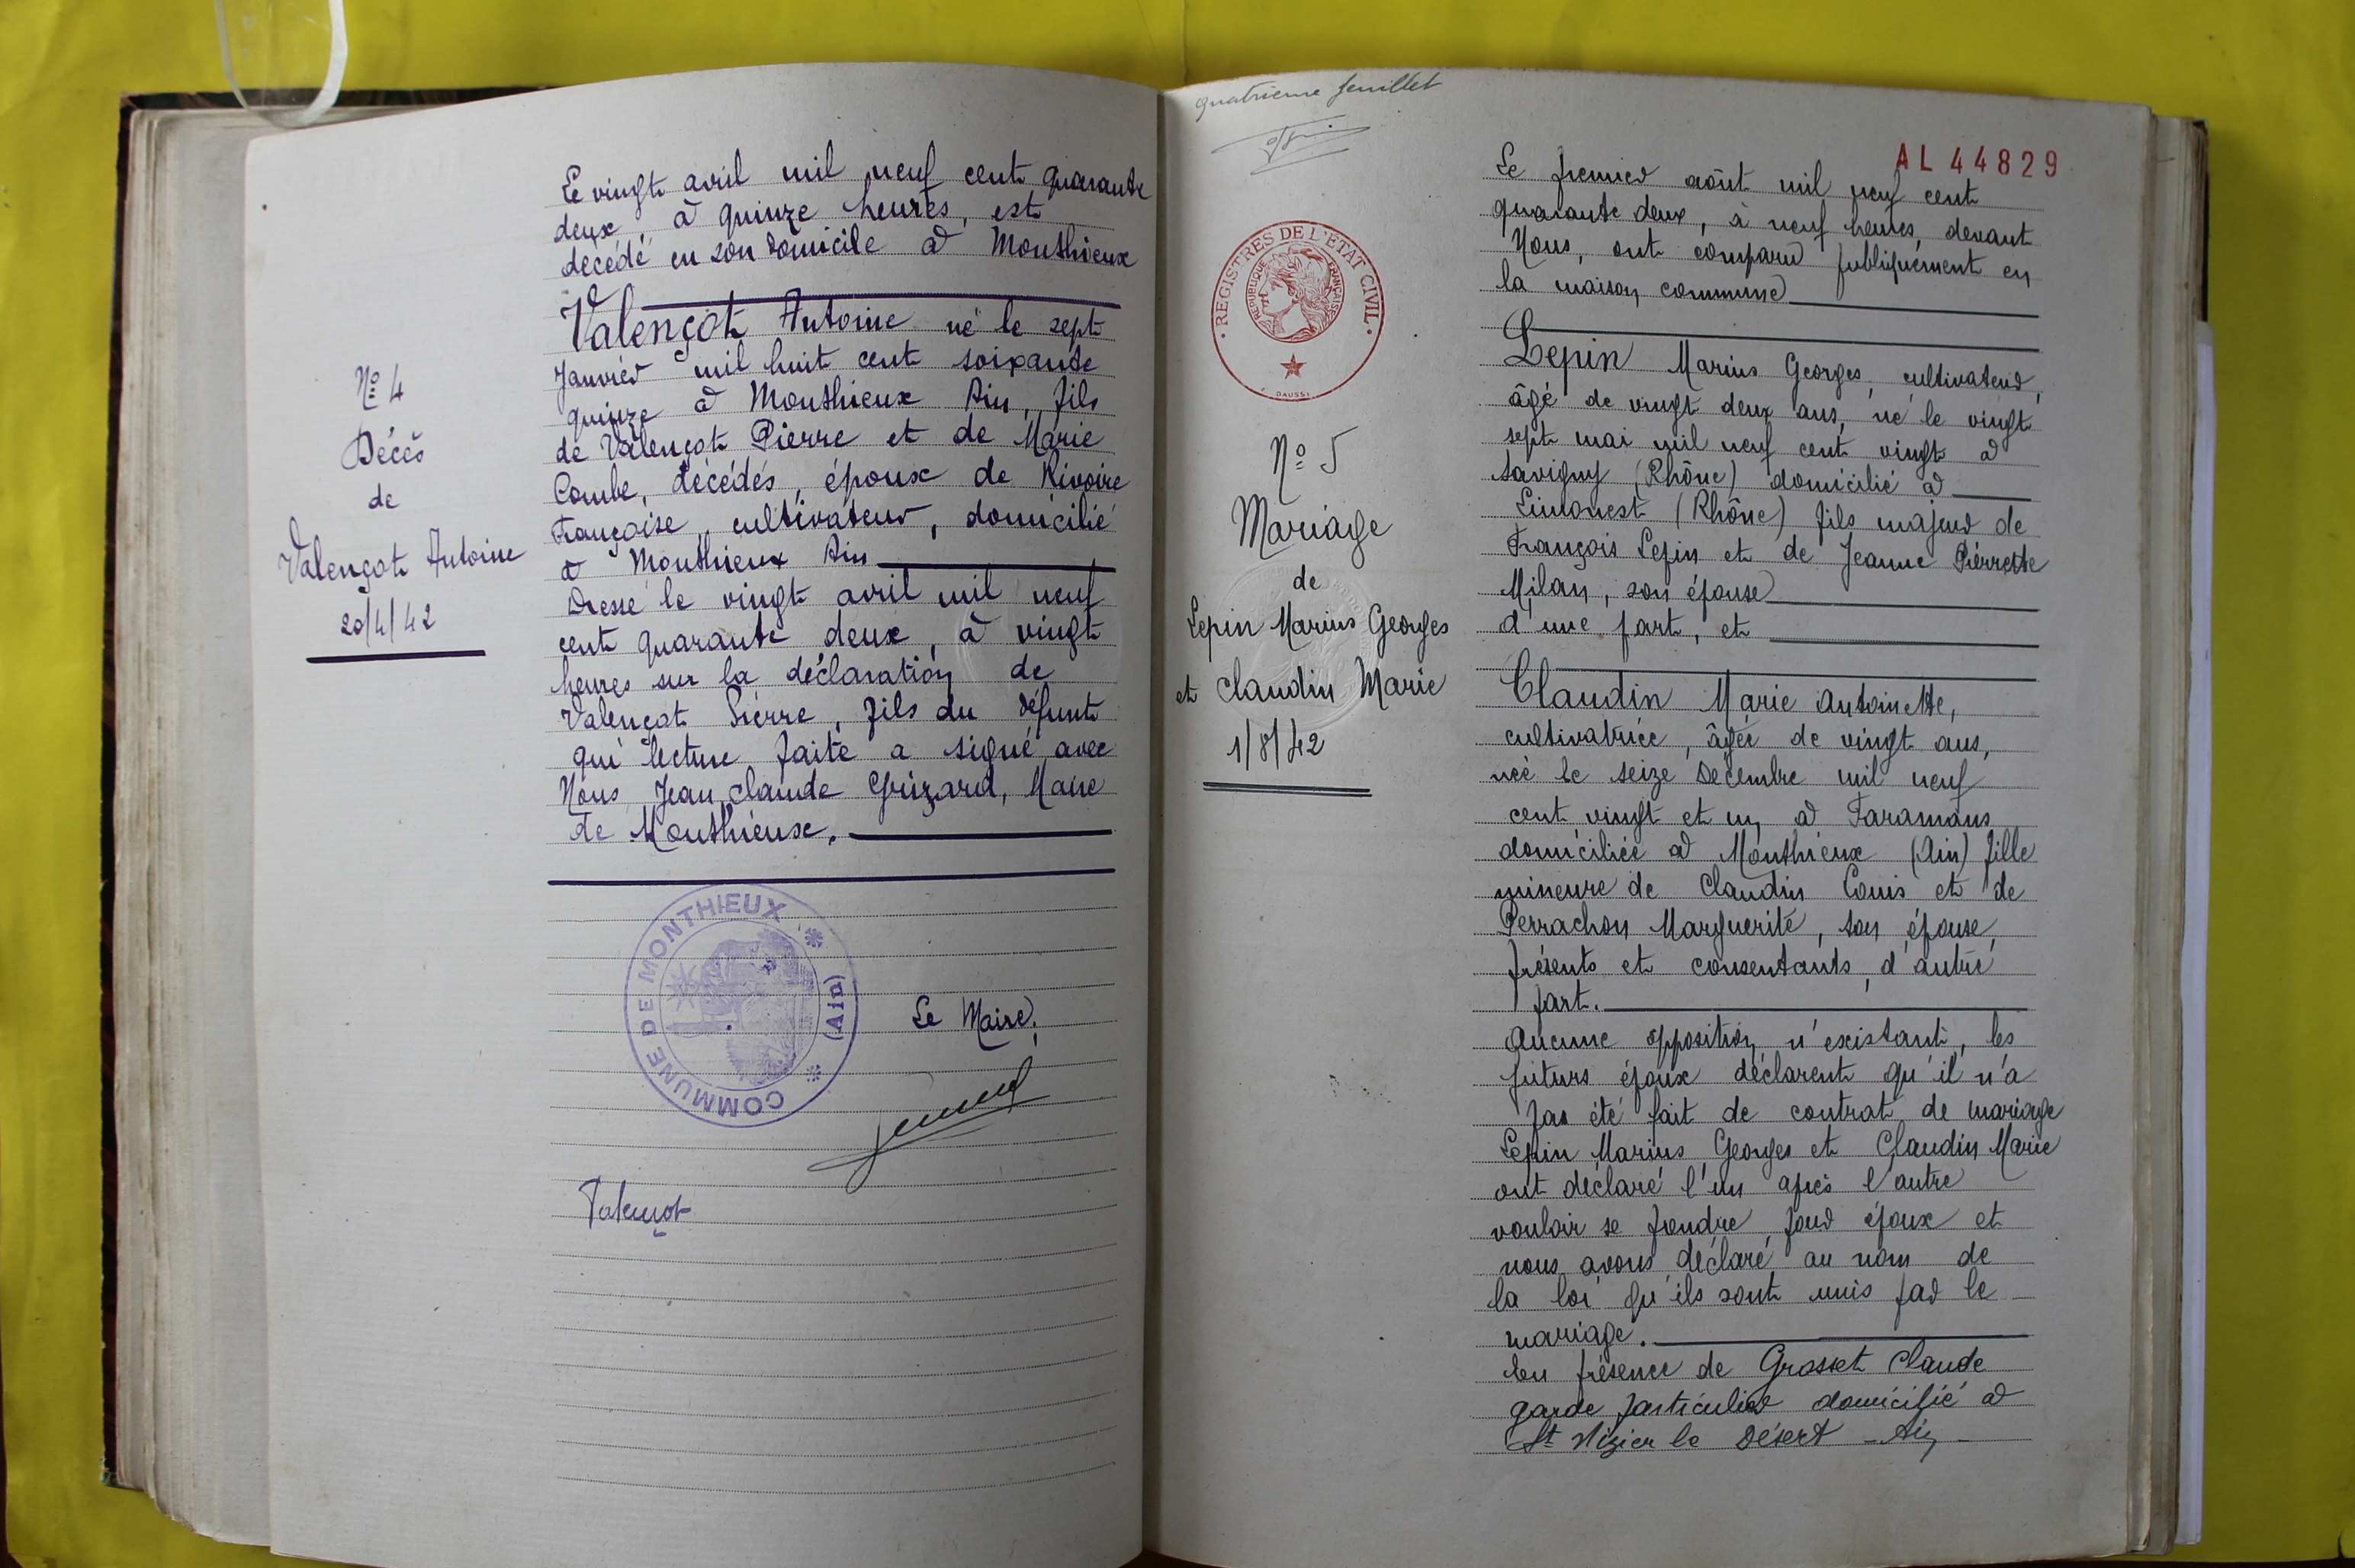 N° 4
Décès
de
Valençot Antoine
20/4/42
Le vingt avril mil neuf cent quarante
deux, à quinze heures, est
décédé en son domicile à Monthieux
Valençot Antoine né le sept
Janvier mil huit cent soixante
quinze à Monthieux Ain, fils
de Valençot Pierre et de Marie
Combe, décédés, époux de Rivoire
Françoise, cultivateur, domicilié
à Monthieux Ain
Dressé le vingt avril mil neuf
cent quarante deux, à vingt
heures sur la déclaration de
Valençot Pierre, fils du défunt
qui lecture faite a signé avec
Nous Jean Claude Grizard, Maire
de Monthieux.
COMMUNE DE MONTHIEUX
(Ain)
Le Maire,
Valençot
quatrième feuillet
AL 44829
REGISTRES DE L'ETAT CIVIL
REPUBLIQUE FRANÇAISE
DAUSSY
N° 5
Mariage
de
Lepin Marius Georges
et Claudin Marie
1/8/42
Le premier août mil neuf cent
quarante deux, à neuf heures, devant
Nous, ont comparu publiquement en
la maison commune
Lepin Marius Georges, cultivateur,
âgé de vingt deux ans, né le vingt
sept mai mil neuf cent vingt à
Savigny (Rhône) domicilié à
Limonest (Rhône) fils majeur de
François Lepin et de Jeanne Pierrette
Milan, son épouse
d'une part, et
Claudin Marie Antoinette,
cultivatrice, âgée de vingt ans,
née le seize Décembre mil neuf
cent vingt et un à Faramans
domiciliée à Monthieux (Ain) fille
mineure de Claudin Louis et de
Perrachon Marguerite, son épouse,
présents et consentants, d'autre
part.
Aucune opposition n'existant, les
futurs époux déclarent qu'il n'a
pas été fait de contrat de mariage
Lepin Marius Georges et Claudin Marie
ont déclaré l'un après l'autre
vouloir se prendre pour époux et
nous avons déclaré au nom de
la loi qu'ils sont unis par le
mariage.
En présence de Grosset Claude
garde particulier domicilié à
St Nizier le Désert - Ain -